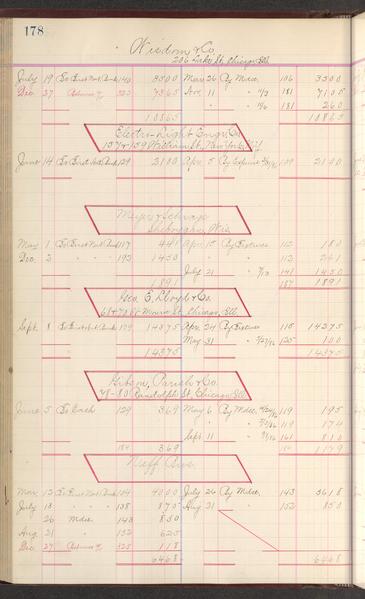 178
Wisdom & Co.
206 Lake St. Chicago, Ill
July 19 To First Nat. Bank 140 3500 Mar 26 By Mdse. 106 3500
Dec. 27 Balance 323 7365 Apr. 11 " 181 7105
" 181 260
10865 10865
Electric Light Engr. Co.
157 & 159 William St. New York City
June 14 To First Nat. Bank 129 2100 Apr. 5 By Expense 109 2100
Meyer & Schwap
Sheboygan, Wis.
May 1 To First Nat. Bank 117 441 Apr. 15 By Fixtures 112 180
Dec. 2 " " 193 1450 " " 112 261
July 21 " 141 1450
1891 187 1891
Geo. E. Lloyd & Co.
61 & 71 W Monroe St. Chicago, Ill.
Sept. 8 To First Nat. Bank 14375 Apr. 24 By Fixtures 115 14275
May 31 " 125 100
14375 14375
Gibson, Parish & Co.
78-80 Randolph St. Chicago, Ill.
June 5 To Cash 129 369 May 6 By Mdse. 119 195
" " 119 174
Sept. 11 " 161 810
184 369 184 1179
Neff Bros.
Mar. 12 To First Nat. Bank 104 4000 July 26 By Mdse. 143 5618
July 18 " " 138 875 Aug 21 " 152 850
" 26 Mdse. 143 850
Aug. 21 " 152 625
Dec. 27 Balance 325 118
6468 6468